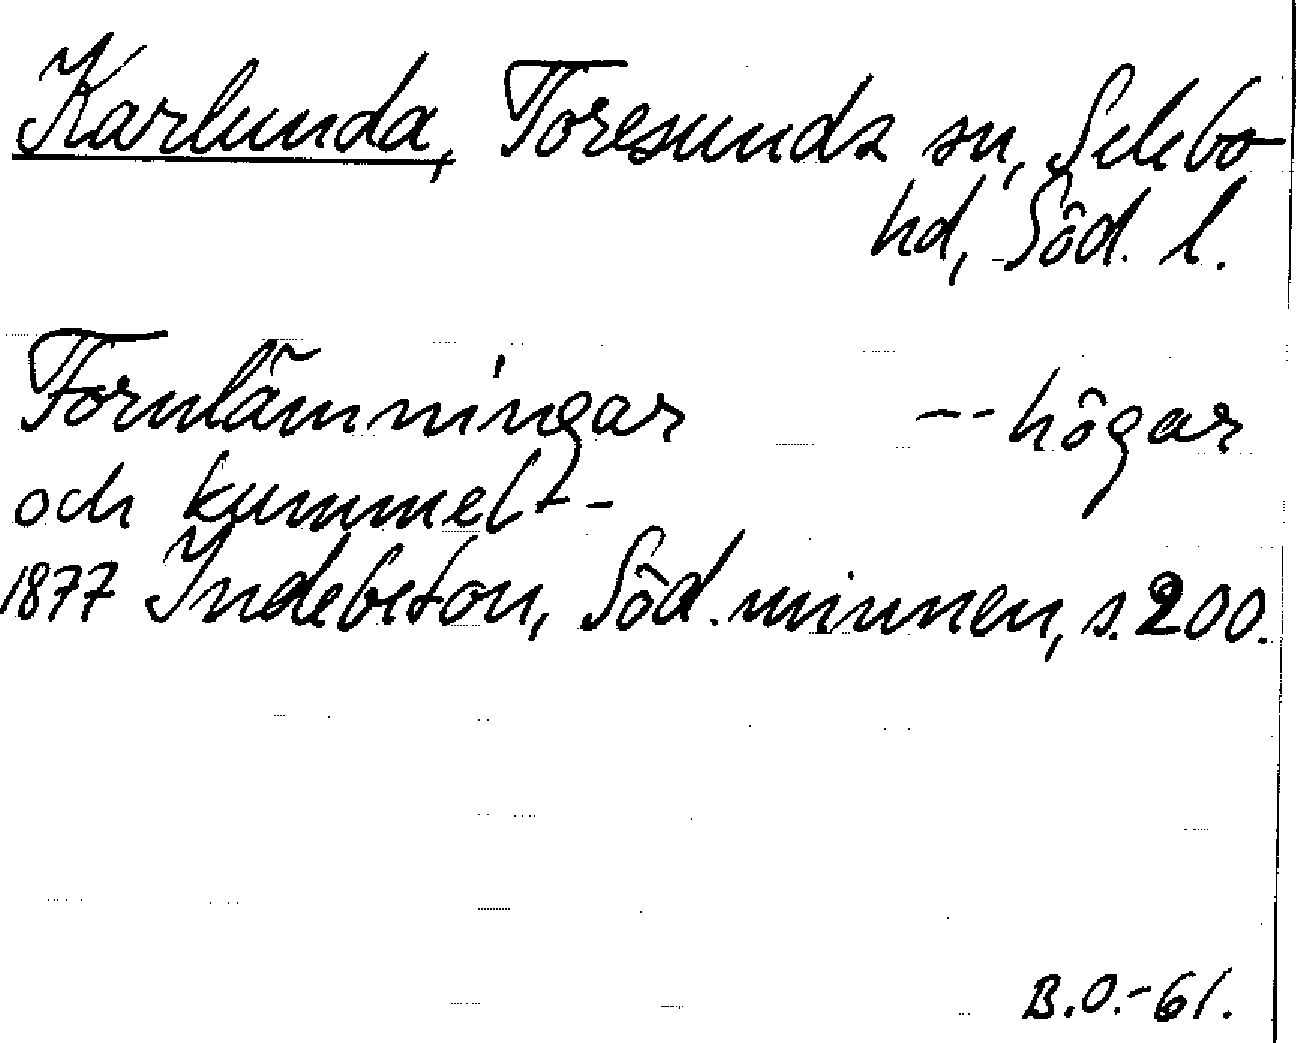 Karlunda, Toresunds sn, Selebo
hd, Söd. l.
Fornlämningar -- högar
och kummel --
1877 Indebetou, Söd. minnen, s. 200.
B.O.-61.